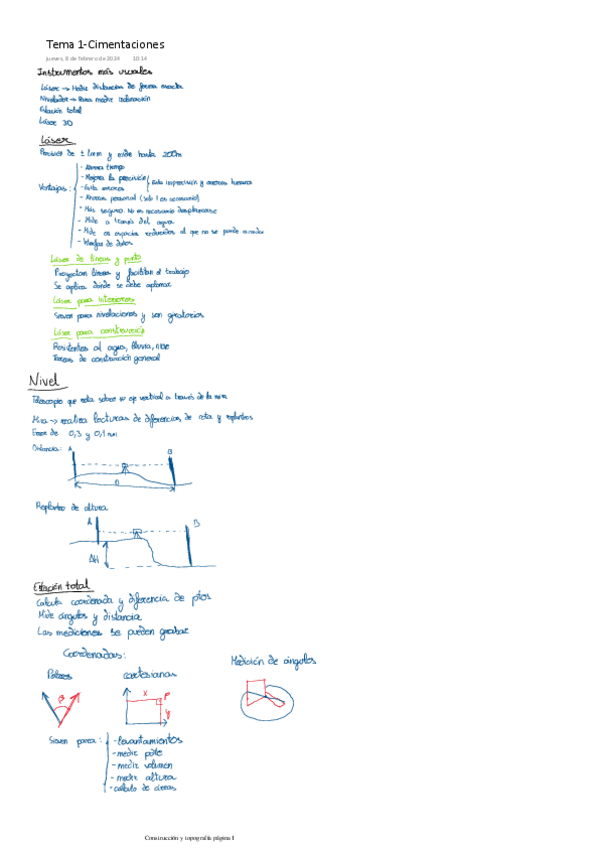 Tema 1-Cimentaciones
jueves, 8 de febrero de 2024 10:14
Instrumentos más usuales
Láser → Medir distancias de forma exacta
Nivelador → Para medir
Estación total
Láser 3D
Láser
Precisión de ± 1mm y mide hasta 200m
Ventajas:
- Ahorra tiempo
- Mejora la precisión
Evita imprecisión y errores humanos
- Evita errores
- Ahorra personal (solo 1 es necesario)
- Más seguro. No es necesario desplazarse
- Mide a través del agua
- Mide en espacios reducidos al que no se puede acceder
- de datos
Láser de líneas y punto
Proyectan líneas y facilitan el trabajo
Se aplica donde se debe
Láser para interiores
Sirven para nivelaciones y son giratorios
Láser para construcción
Resistentes al agua, lluvia,
Tareas de construcción general
Nivel
Telescopio que rota sobre su eje vertical a través de la mira
Mira → realiza lecturas de diferencias de cota y replanteos
Error de 0,3 y 0,1 mm
Distancia: A B
D
Replanteo de altura
A B
ΔH
Estación total
Calcula coordenada y diferencia de ptos
Mide ángulos y distancia
Las mediciones se pueden grabar
Coordenadas:
Medición de ángulos
Polares cartesianas
β x P
y
Sirven para:
- levantamientos
- medir
- medir volumen
- medir altura
- calculo de áreas
Construcción y topografía página 1